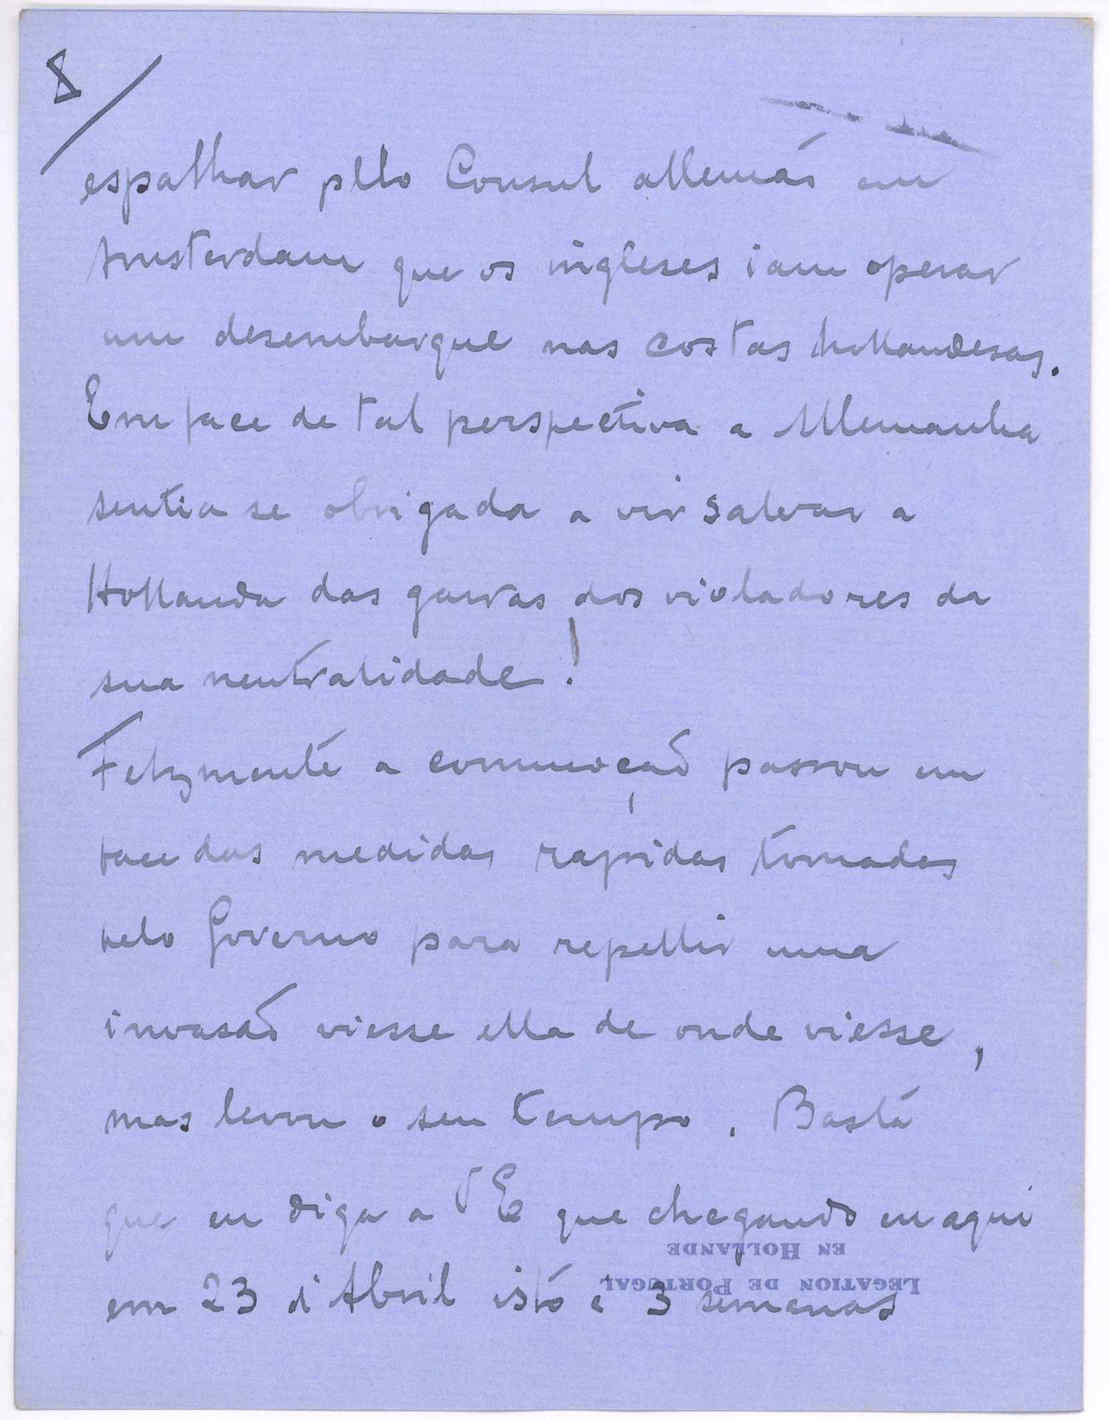 8
espalhar pello Consul allemão em
Amsterdam que os ingleses iam operar
um desembarque nas costas hollandesas.
Em face de tal perspectiva a Allemanha
sentia se obrigada a vir salvar a
Hollanda das garras dos violadores da
sua neutralidade!
Felizmente a commoção passou em
face das medidas rapidas tomadas
pelo Governo para repellir uma
invasão viesse ella de onde viesse,
mas levou o seu tempo. Basta
que eu diga a VE que chegando eu aqui
em 23 d'Abril isto é 3 semanas
LEGATION DE PORTUGAL
EN HOLLANDE